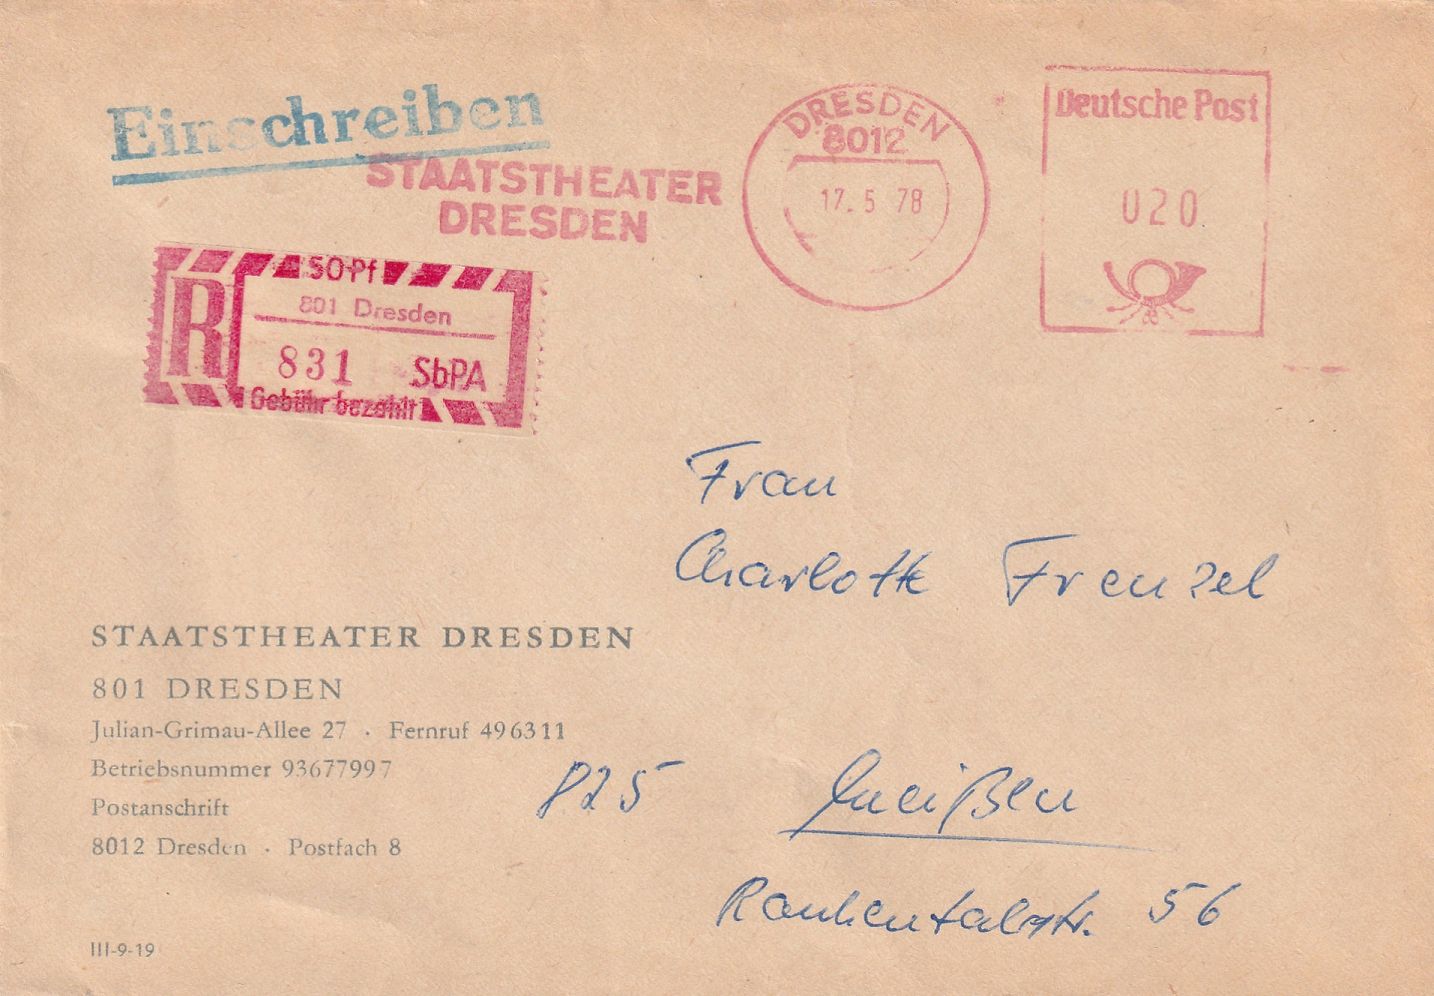 Einschreiben
STAATSTHEATER
DRESDEN
DRESDEN
8012
17.5 78
Deutsche Post
020
50 Pf
R
801 Dresden
831 SbPA
Gebühr bezahlt
Frau
Charlotte Frenzel
STAATSTHEATER DRESDEN
801 DRESDEN
Julian-Grimau-Allee 27 · Fernruf 496311
Betriebsnummer 93677997
Postanschrift
8012 Dresden · Postfach 8
825 Meißen
Rauhentalstr. 56
III-9-19